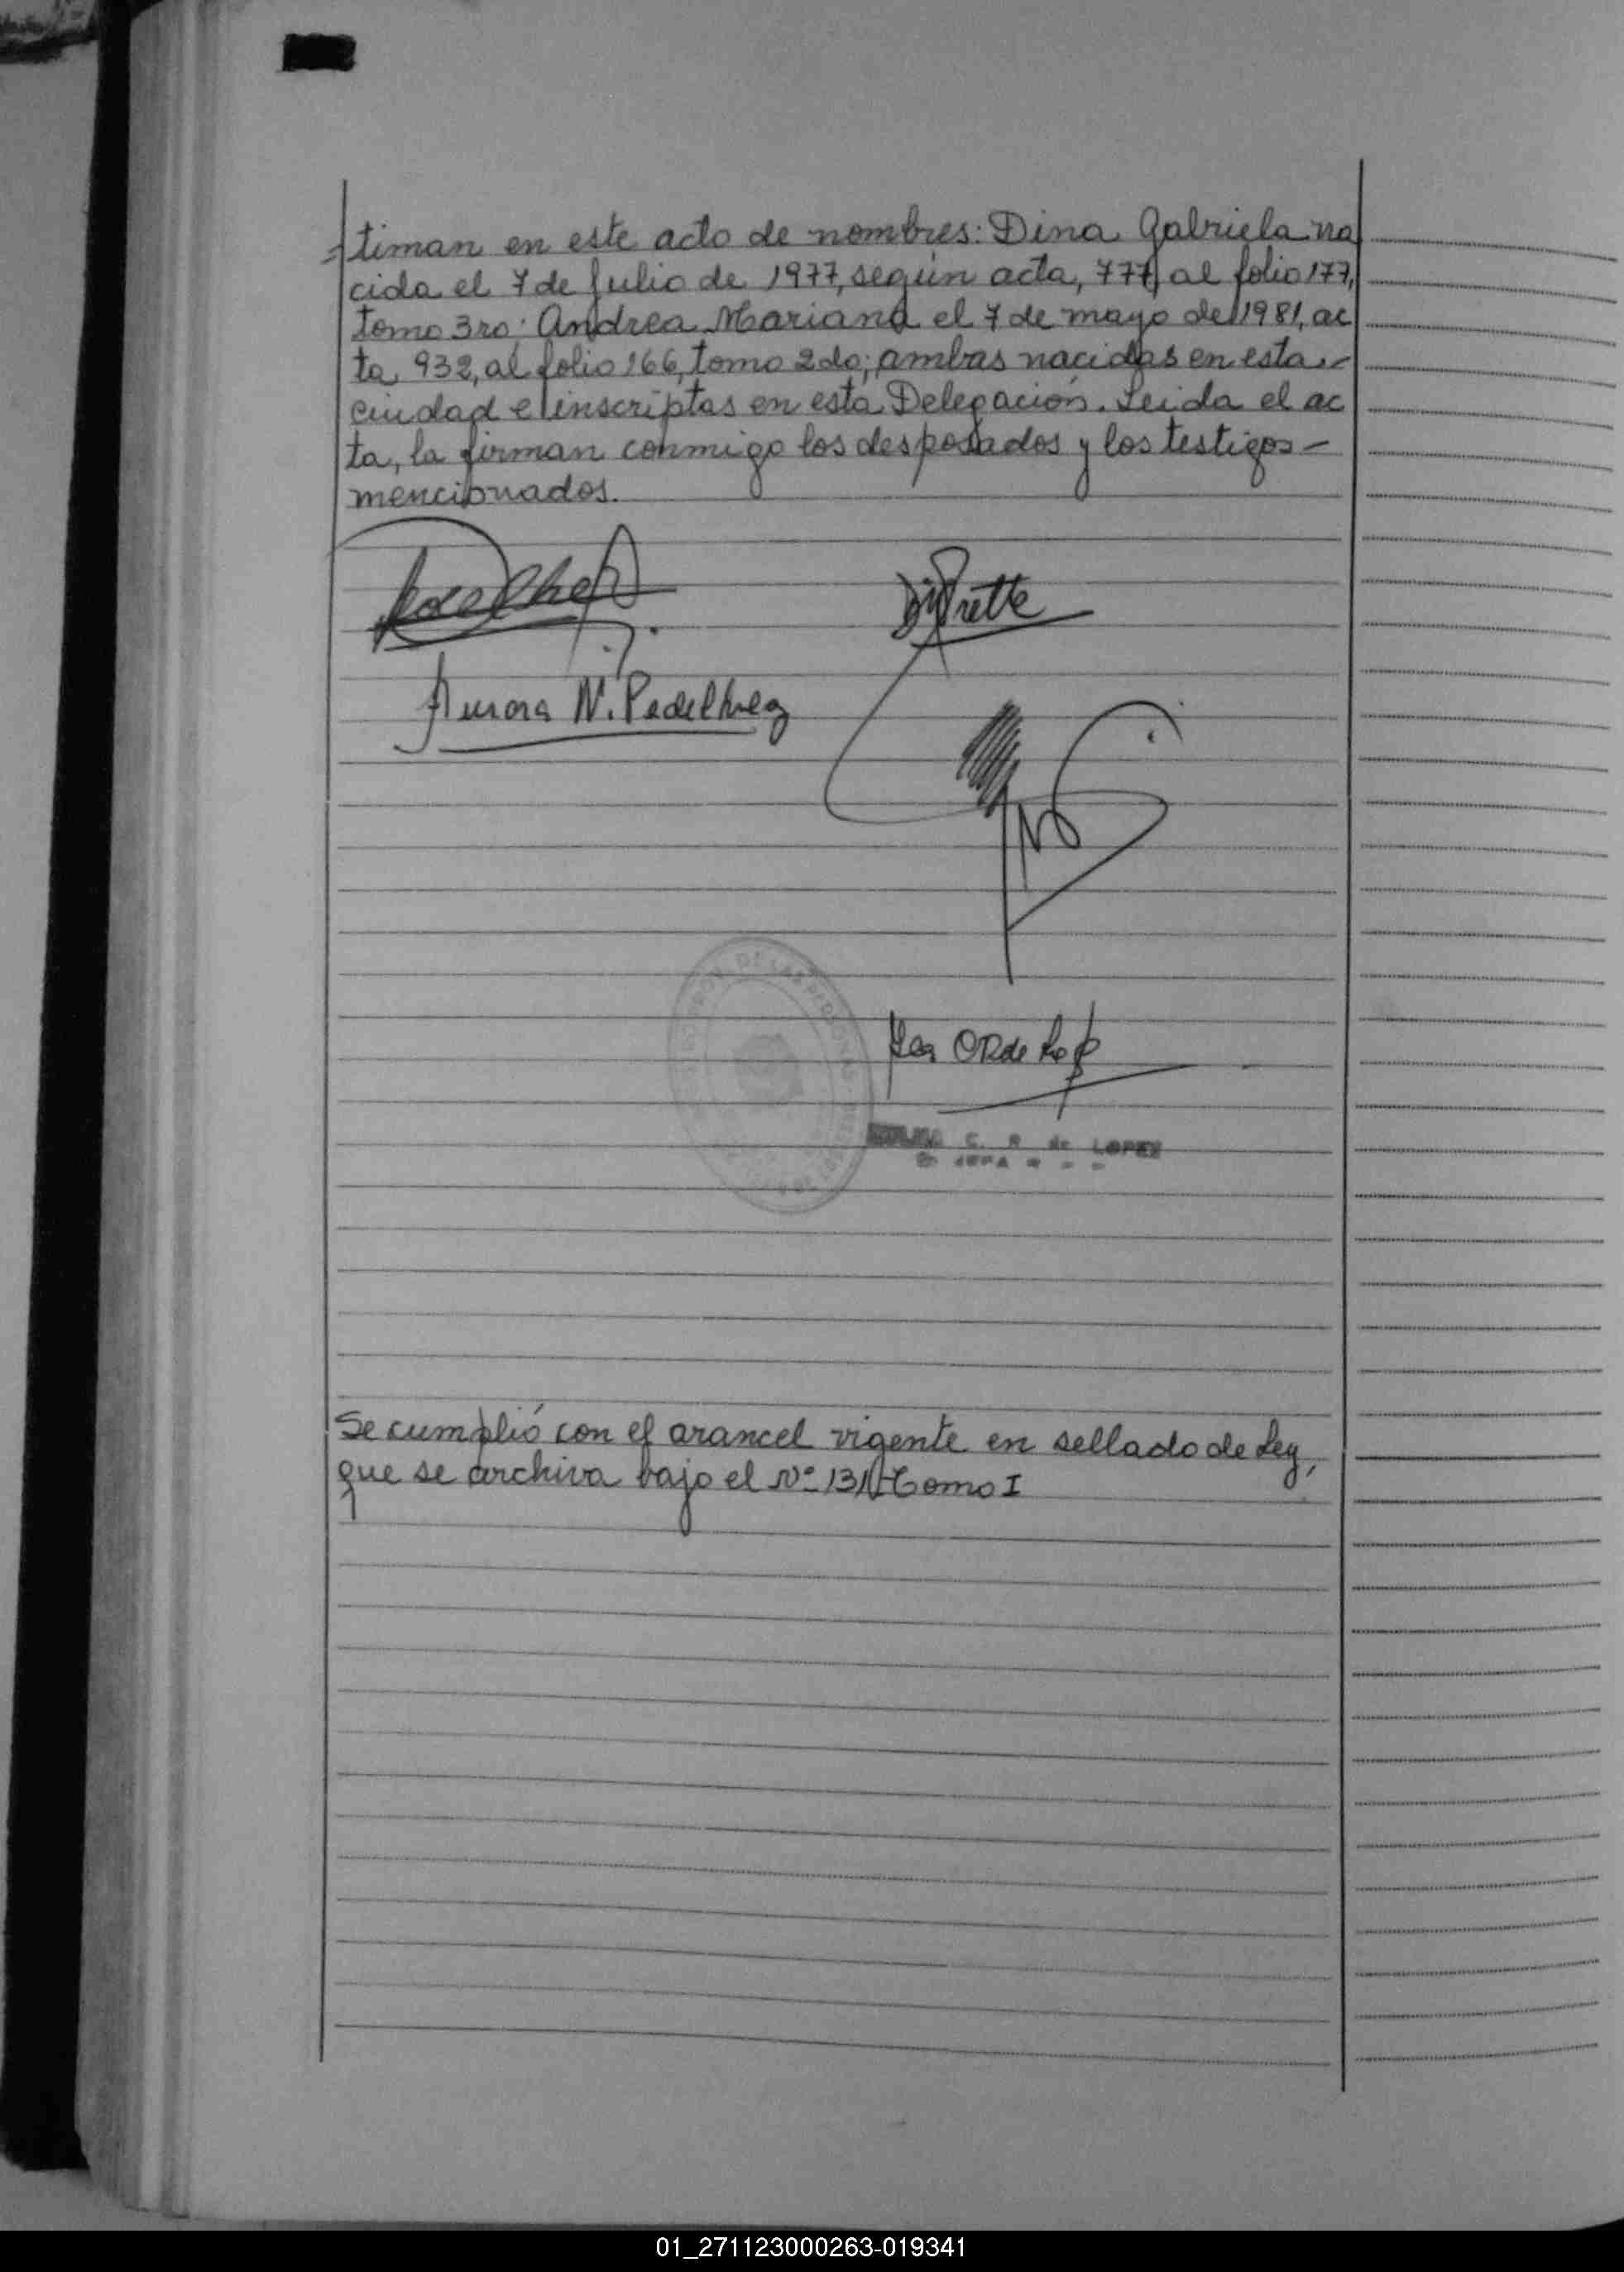 =timan en este acto de nombres: Dina Gabriela na
cida el 7 de Julio de 1977, según acta, 777, al folio 177,
tomo 3ro; Andrea Mariana el 7 de mayo de 1981, ac
ta 932, al folio 166, tomo 2do; ambas nacidas en esta -
ciudad e inscriptas en esta Delegación. Leida el ac
ta, la firman conmigo los desposados y los testigos -
mencionados.
Aurora N. Pedelhez
C. R. de LOPEZ
Se cumplió con el arancel vigente en sellado de Ley,
que se archiva bajo el Nº 131 Tomo I
01_271123000263-019341